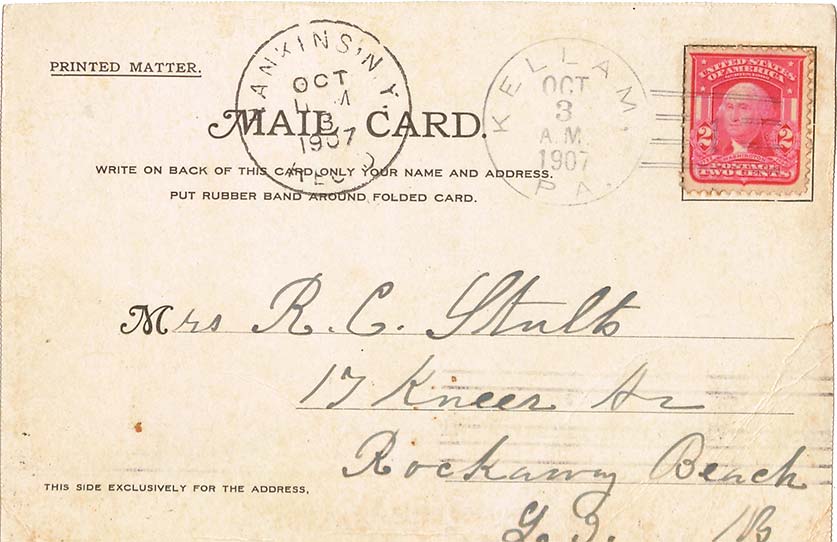 PRINTED MATTER.
HANKINS, N.Y.
OCT
3
1907
REC'D
MAIL CARD.
KELLAM,
OCT
3
A.M.
1907
PA.
UNITED STATES
OF AMERICA
2 2
POSTAGE
TWO CENTS
WRITE ON BACK OF THIS CARD ONLY YOUR NAME AND ADDRESS.
PUT RUBBER BAND AROUND FOLDED CARD.
Mrs R. C. Stults
17 Kneer
Rockaway Beach
THIS SIDE EXCLUSIVELY FOR THE ADDRESS,